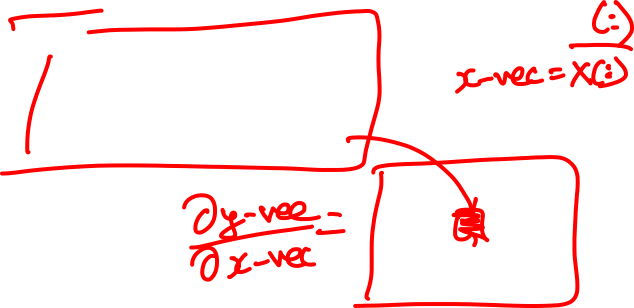 (:)
x-vec = X(:)
∂y-vec =
∂x-vec